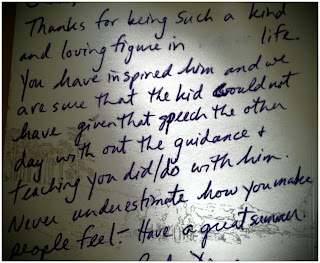 Thanks for being such a kind
and loving figure in life.
You have inspired him and we
are sure that the kid would not
have given that speech the other
day with out the guidance +
teaching you did/do with him.
Never underestimate how you make
people feel - Have a great summer.